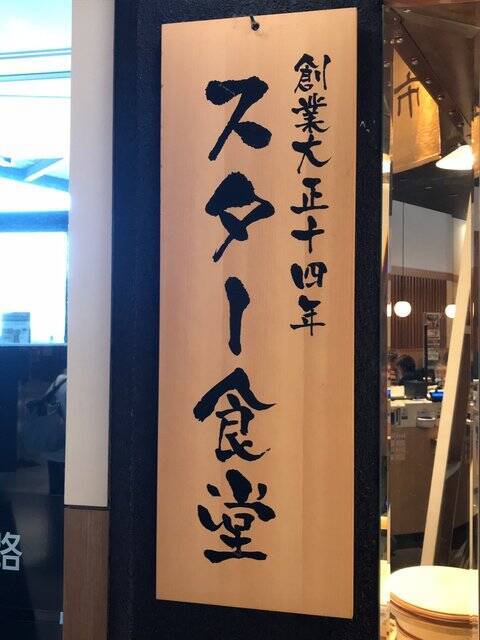 創業大正十四年
スター食堂
路